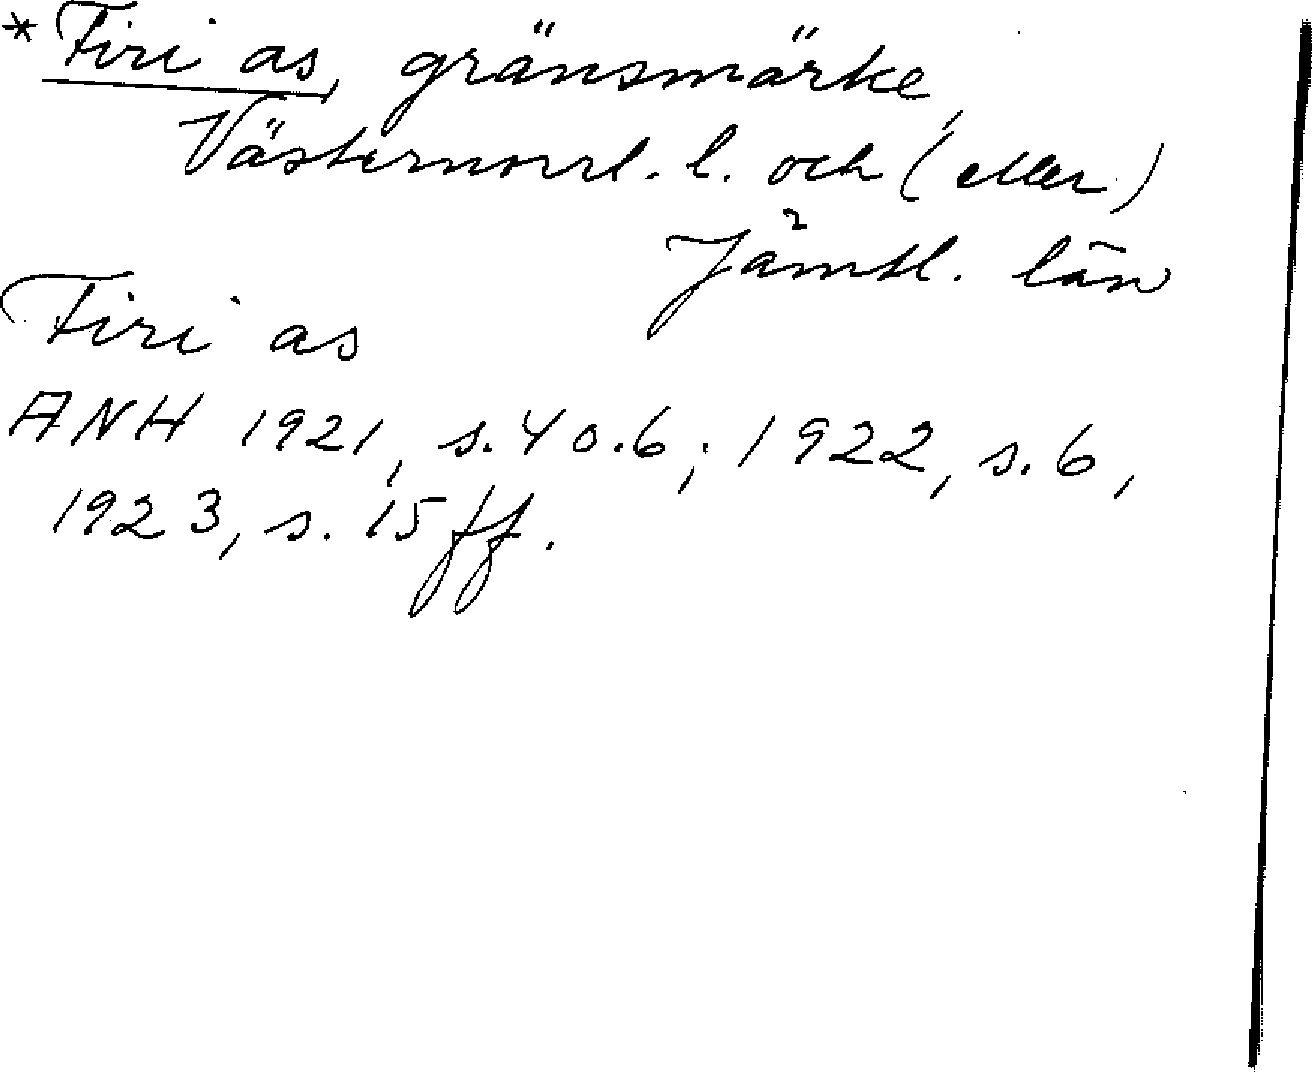 *Firi as, gränsmärke,
Västernorrl. l. och (eller)
Jämtl. län
Firi as
ANH 1921, s. 4 o. 6; 1922, s. 6,
1923, s. 15 ff.